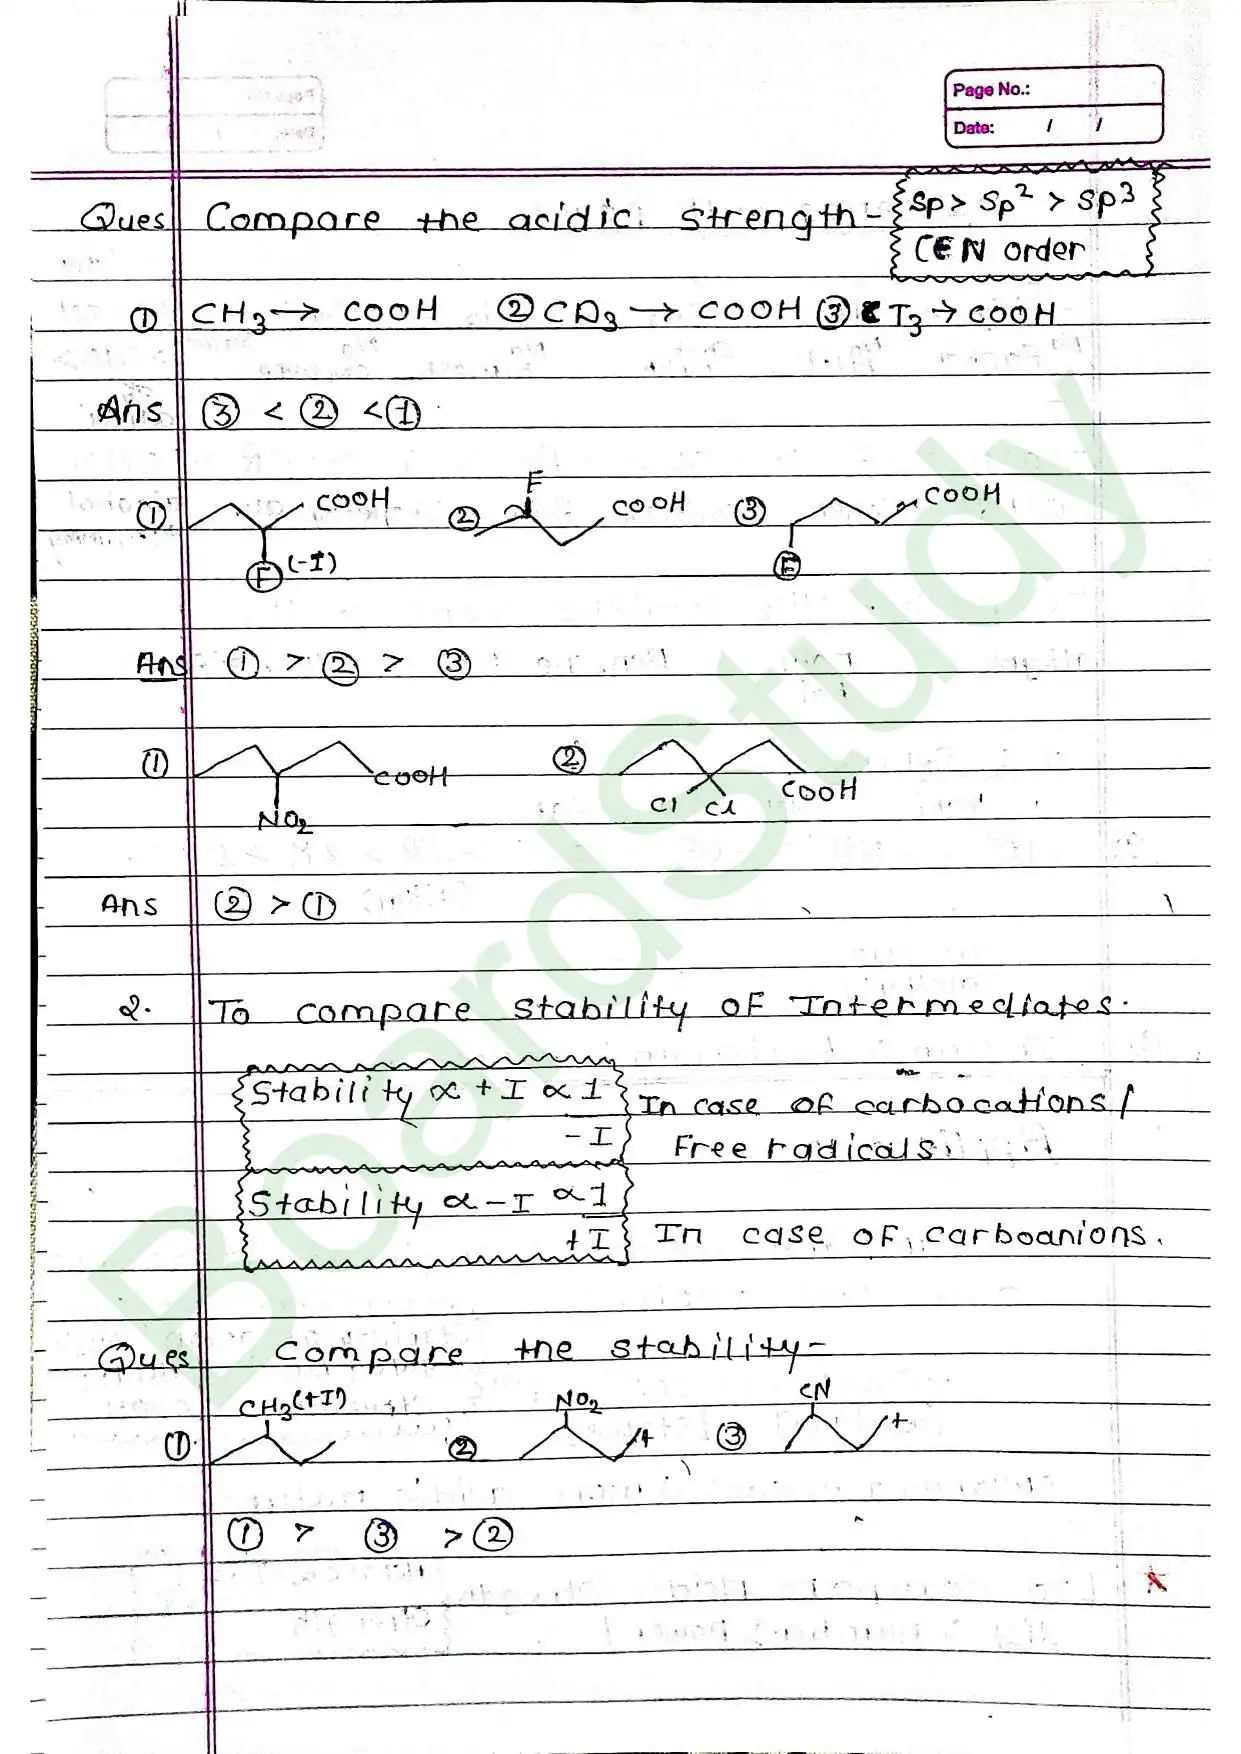 Page No.:
Date: / /
Ques Compare the acidic strength- sp > sp² > sp³
EN order
① CH₃→ COOH ② CD₃ → COOH ③ CT₃ → COOH
Ans ③ < ② < ①
① COOH F (-I) ② F COOH ③ COOH F
Ans ① > ② > ③
① NO₂ COOH ② Cl Cl COOH
Ans ② > ①
2. To compare stability of Intermediates.
Stability ∝ +I ∝ 1/-I In case of carbocations/
Free radicals.
Stability ∝ -I ∝ 1/+I In case of carboanions.
Ques compare the stability-
① CH₃(+I) ② NO₂ + ③ CN +
① > ③ > ②
BoardStudy